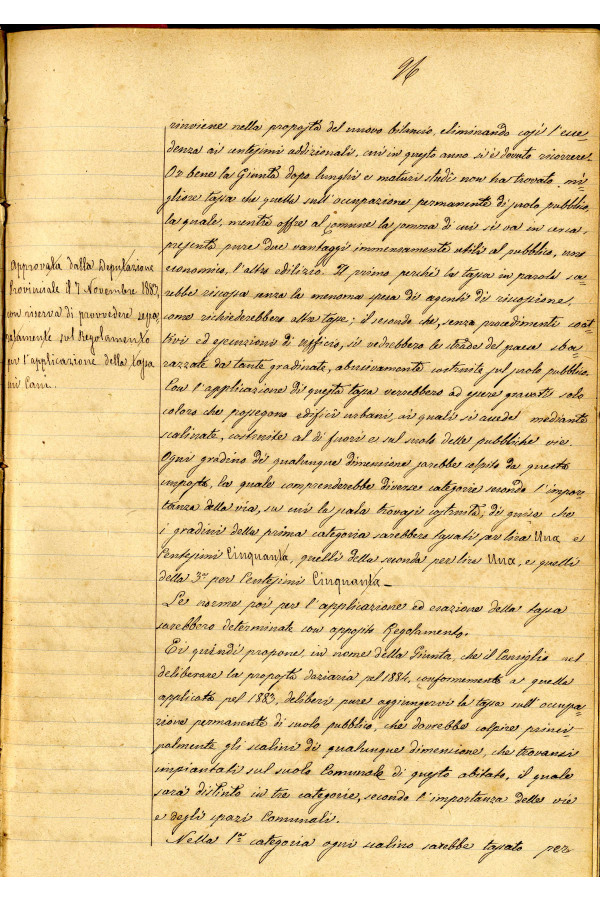 96
rinviene nella proposta del nuovo bilancio, eliminando così l'ecce-
denza ai centesimi addizionali, cui in questo anno si è dovuto ricorrere.
Or bene la Giunta dopo lunghi e maturi studi non ha trovato mi-
gliore tassa che quella sull'occupazione permanente di suolo pubblico,
la quale, mentre offre al Comune la somma di cui si va in cerca,
presenta pure due vantaggi immensamente utili al pubblico, uno
economico, l'altro edilizio. Il primo perché la tassa in parola sa-
rebbe riscossa senza la menoma spesa di agenti di riscossione,
come richiederebbero altre tasse; il secondo che, senza procedimenti coat-
tivi ed esecuzioni di ufficio, si vedrebbero le strade del paese sba-
razzate da tante gradinate, abusivamente costruite sul suolo pubblico.
Con l'applicazione di questa tassa verrebbero ad essere gravati solo
coloro che posseggono edificii urbani, ai quali si accede mediante
scalinate, costruite al di fuori e sul suolo delle pubbliche vie.
Ogni gradino di qualunque dimensione sarebbe colpito da questa
imposta, la quale comprenderebbe diverse categorie secondo l'impor-
tanza della via, su cui la scala trovasi costruita, di guisa che
i gradini della prima categoria sarebbero tassati per lira Una e
Centesimi Cinquanta, quelli della seconda per lire Una, e quelli
della 3a per Centesimi Cinquanta_
Le norme poi per l'applicazione ed esazione della tassa
sarebbero determinate con apposito Regolamento.
Ei quindi propone, in nome della Giunta, che il Consiglio nel
deliberare la proposta daziaria pel 1884, conformemente a quella
applicata pel 1883, deliberi pure aggiungervi la tassa sull'occupa-
zione permanente di suolo pubblico, che dovrebbe colpire princi-
palmente gli scalini di qualunque dimensione, che trovansi
impiantati sul suolo Comunale di questo abitato, il quale
sarà distinto in tre categorie, secondo l'importanza delle vie
e degli spazi Comunali.
Nella 1a categoria ogni scalino sarebbe tassato per
Approvata dalla Deputazione
Provinciale il 7 Novembre 1883,
con riserva di provvedere sepa-
ratamente sul Regolamento
per l'applicazione della tassa
sui Cani.